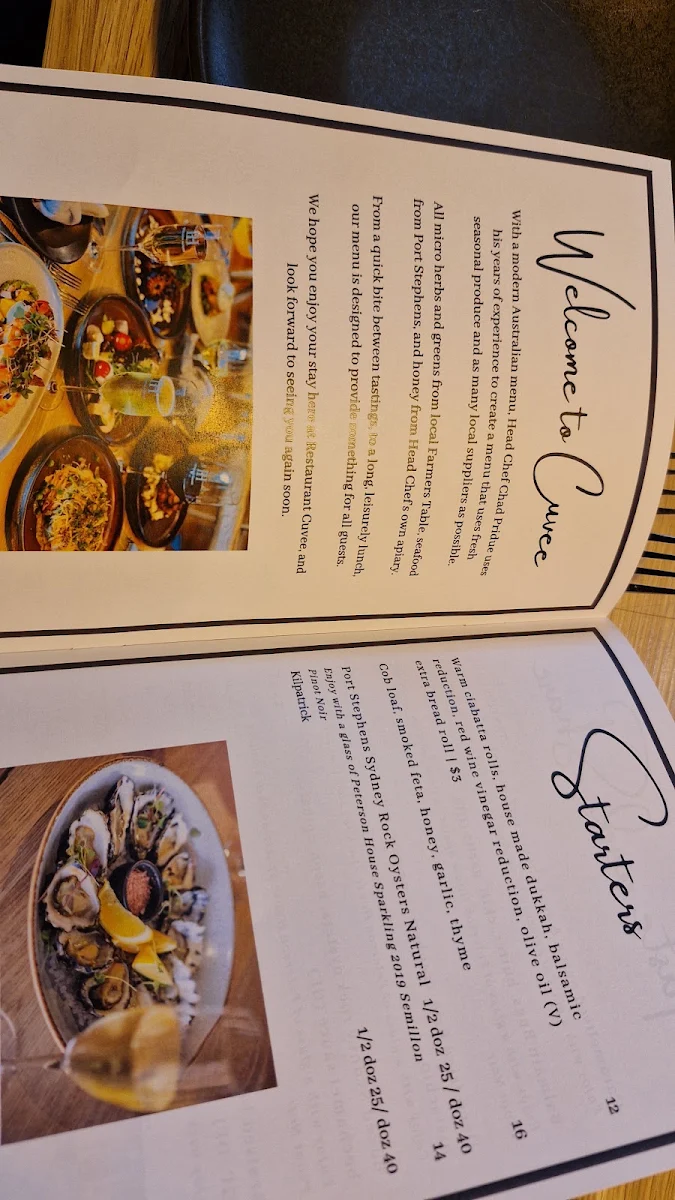 Welcome to Cuvee
With a modern Australian menu, Head Chef Chad Pridue uses
his years of experience to create a menu that uses fresh
seasonal produce and as many local suppliers as possible.
All micro herbs and greens from local Farmers Table, seafood
from Port Stephens, and honey from Head Chef's own apiary.
From a quick bite between tastings, to a long, leisurely lunch,
our menu is designed to provide something for all guests.
We hope you enjoy your stay here at Restaurant Cuvee, and
look forward to seeing you again soon.
Starters
Warm ciabatta rolls, house made dukkah, balsamic 12
reduction, red wine vinegar reduction, olive oil (V)
extra bread roll | $3
Cob loaf, smoked feta, honey, garlic, thyme 16
Port Stephens Sydney Rock Oysters Natural 1/2 doz 25 / doz 40
Enjoy with a glass of Peterson House Sparkling 2019 Semillon 14
Pinot Noir
Kilpatrick 1/2 doz 25/ doz 40